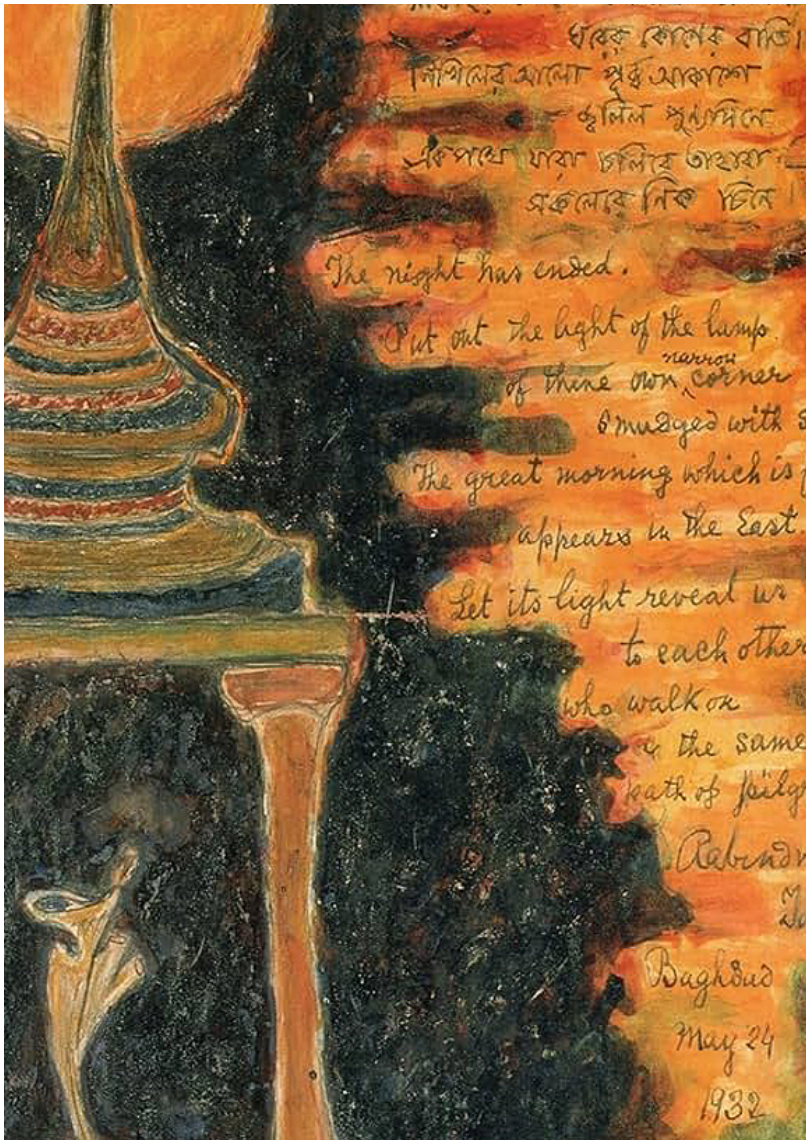 ঘরের কোণের বাতি।
নিখিলের আলো পূর্ব্ব আকাশে
জ্বলিল পুণ্যদিনে
একপথে যারা চলিবে তাহারা
সকলেরে নিক চিনে
The night has ended.
Put out the light of the lamp
of thine own narrow corner
smudged with s
The great morning which is
appears in the East
Let its light reveal us
to each other
who walk on
the same
path of pilg
Rabindr
Baghdad
May 24
1932